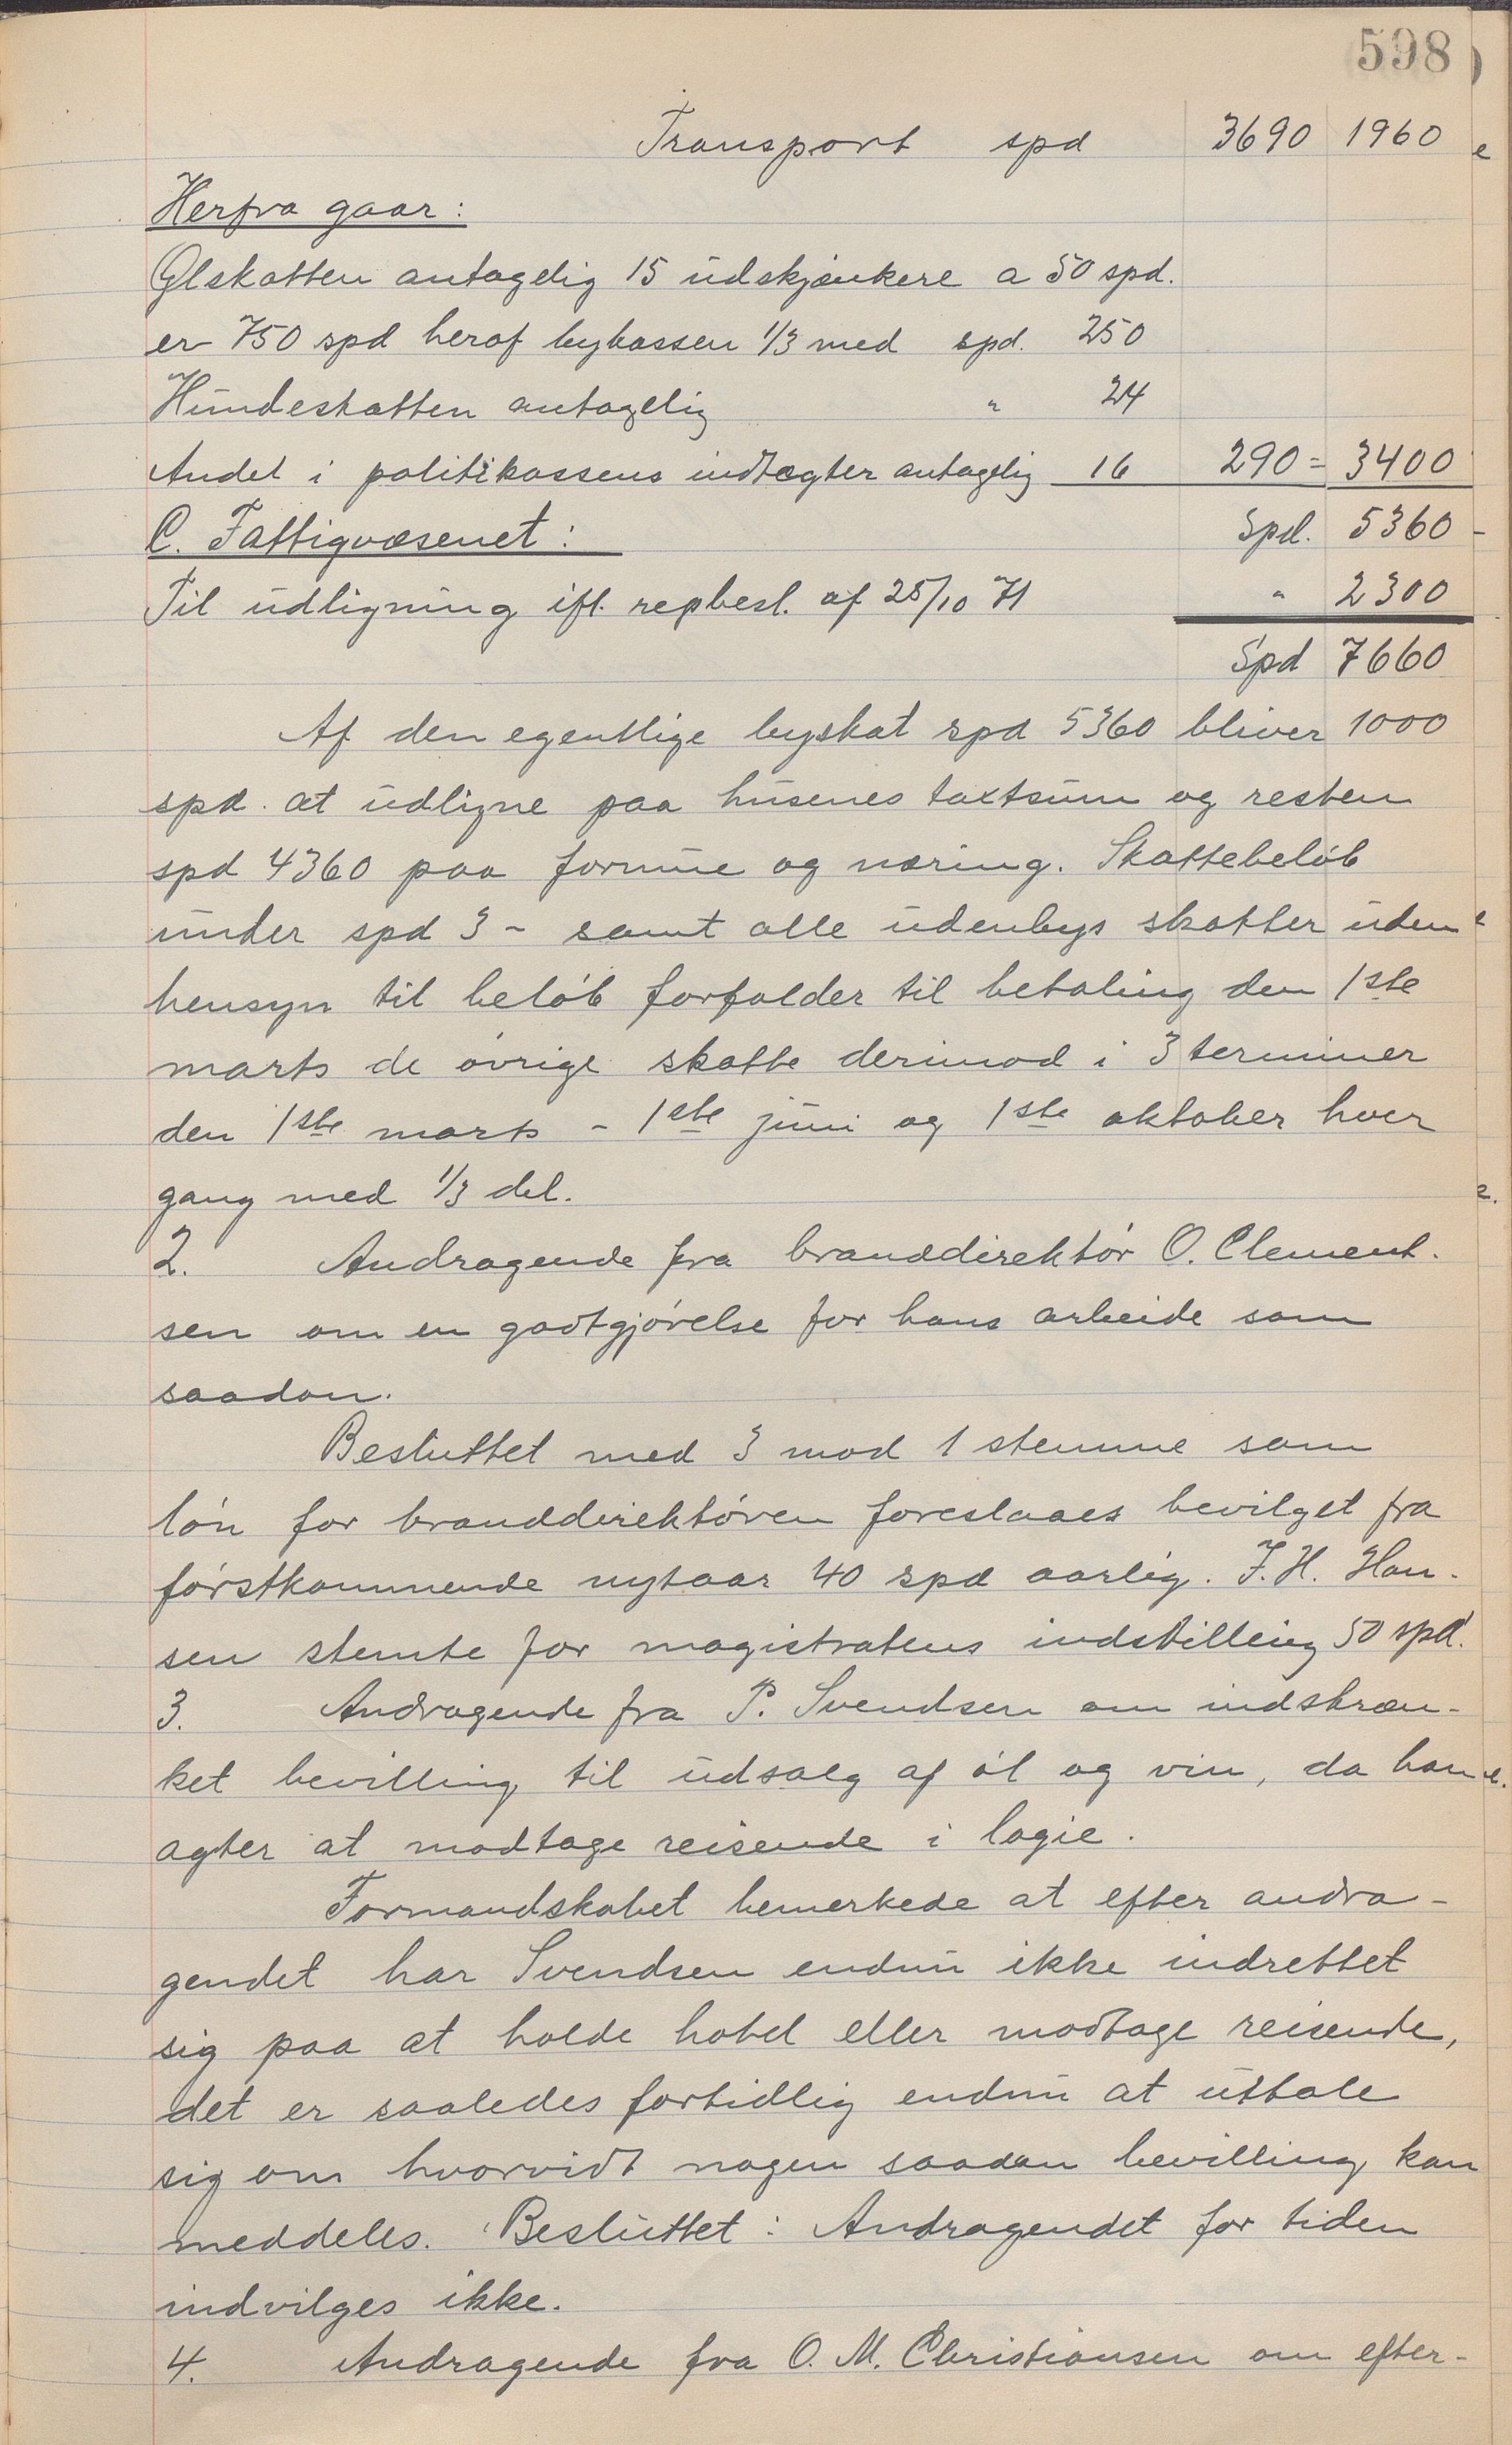 598
Transport spd 3690 1960
Herfra gaar:
Ølskatten antagelig 15 udskjænkere a 50 spd.
er 750 spd heraf bykassen 1/3 med spd. 250
Hundeskatten antagelig " 24
Andel i politikassens indtægter antagelig 16 290 = 3400
C. Fattigvæsenet: Spd. 5360 -
Til udligning ifl. repbesl. af 25/10 71 " 2300
Spd 7660
Af den egentlige byskat spd 5360 bliver 1000
spd. at udligne paa husenes taxtsum og resten
spd 4360 paa formue og næring. Skattebeløb
under spd 3 - samt alle udenbys skatter uden
hensyn til beløb forfalder til betaling den 1ste
marts de øvrige skatte derimod i 3 terminer
den 1ste marts - 1ste juni og 1ste oktober hver
gang med 1/3 del.
2. Andragende fra branddirektør O. Clement-
sen om en godtgjørelse for hans arbeide som
saadan.
Besluttet med 3 mod 1 stemme som
løn for branddirektøren foreslaaes bevilget fra
førstkommende nytaar 40 spd aarlig. J. H. Han-
sen stemte for magistratens indstilling 50 spd.
3. Andragende fra P. Svendsen om indskræn-
ket bevilling til udsalg af øl og vin, da han
agter at modtage reisende i logie.
Formandskabet bemerkede at efter andra-
gendet har Svendsen endnu ikke indrettet
sig paa at holde hotel eller modtage reisende,
det er saaledes fortidlig endnu at udtale
sig om hvorvidt nogen saadan bevilling kan
meddeles. Besluttet: Andragendet for tiden
indvilges ikke.
4. Andragende fra O. M. Christiansen om efter-